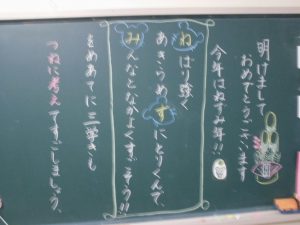 明けまして
おめでとうございます
今年はねずみ年!!
ねばり強く
あきらめずにとりくんで、
みんなとなかよくすごそう!!
をめあてに三学きも
つねに考えてすごしましょう。